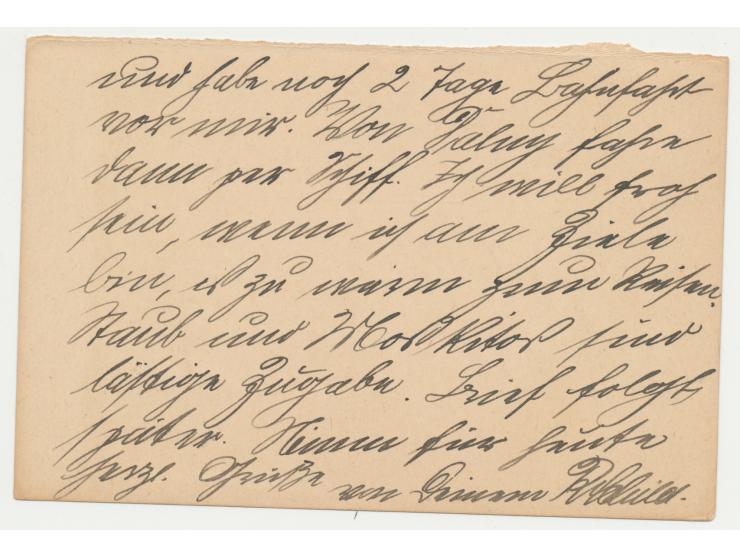 und habe noch 2 Tage Bahnfahrt
vor mir. Von Dalny fahre
dann per Schiff. Ich will froh
sein, wenn ich am Ziele
bin, es zu warm zum Reisen.
Staub und Moskitos sind
lästige Zugabe. Brief folgt
später. Nimm für heute
herzl. Grüße von Deinem